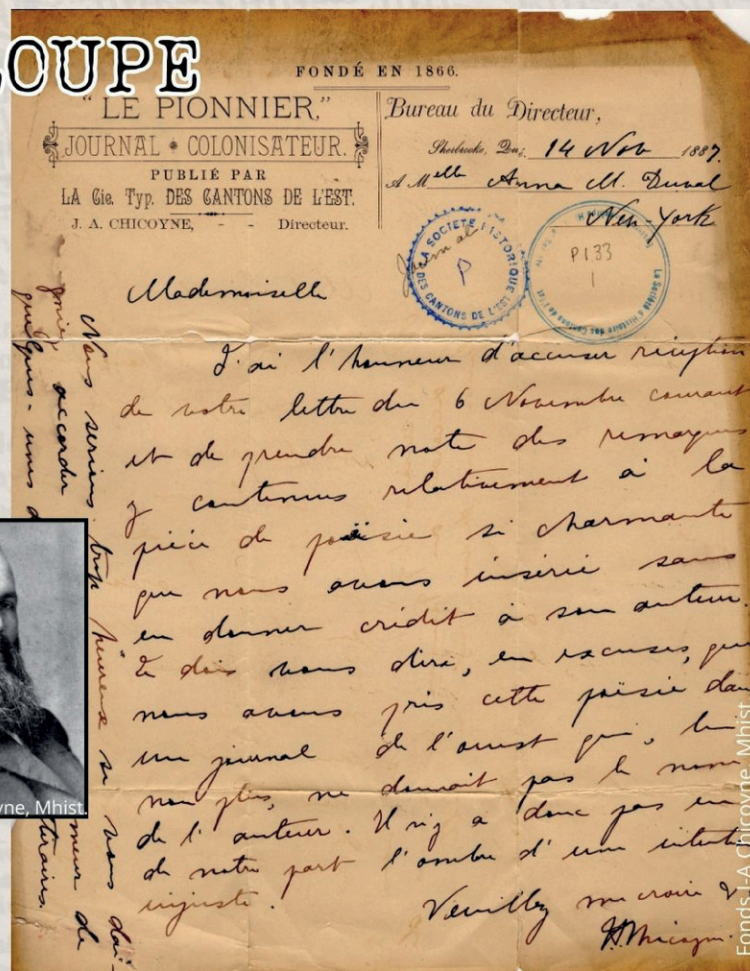 OUPE
FONDÉ EN 1866.
"LE PIONNIER,"
JOURNAL COLONISATEUR.
PUBLIÉ PAR
LA Cie. Typ. DES CANTONS DE L'EST.
J. A. CHICOYNE, - - Directeur.
Bureau du Directeur,
Sherbrooke, Qué, 14 Nov 1887.
A Melle Anna M. Duval
New-York
LA SOCIÉTÉ HISTORIQUE
DES CANTONS DE L'EST
P
Journal
La Société d'Histoire des Cantons de l'Est
P133
1
Mademoiselle
J'ai l'honneur d'accuser réception
de votre lettre du 6 Novembre courant
et de prendre note des remarques
y contenues relativement à la
pièce de poësie si charmante
que nous avons insérée sans
en donner crédit à son auteur.
Je dois vous dire, en excuses, que
nous avons pris cette poësie dans
un journal de l'ouest qui, lui
non plus, ne donnait pas le nom
de l'auteur. Il n'y a donc pas eu
de notre part l'ombre d'une intent
injuste.
Veuillez me croire &
JAChicoyne.
Nous serions trop heureux si vous dai-
gniez accorder
meur de
quelques-unes d
ttéraires.
yne, Mhist.
Fonds J-A Chicoyne Mhist